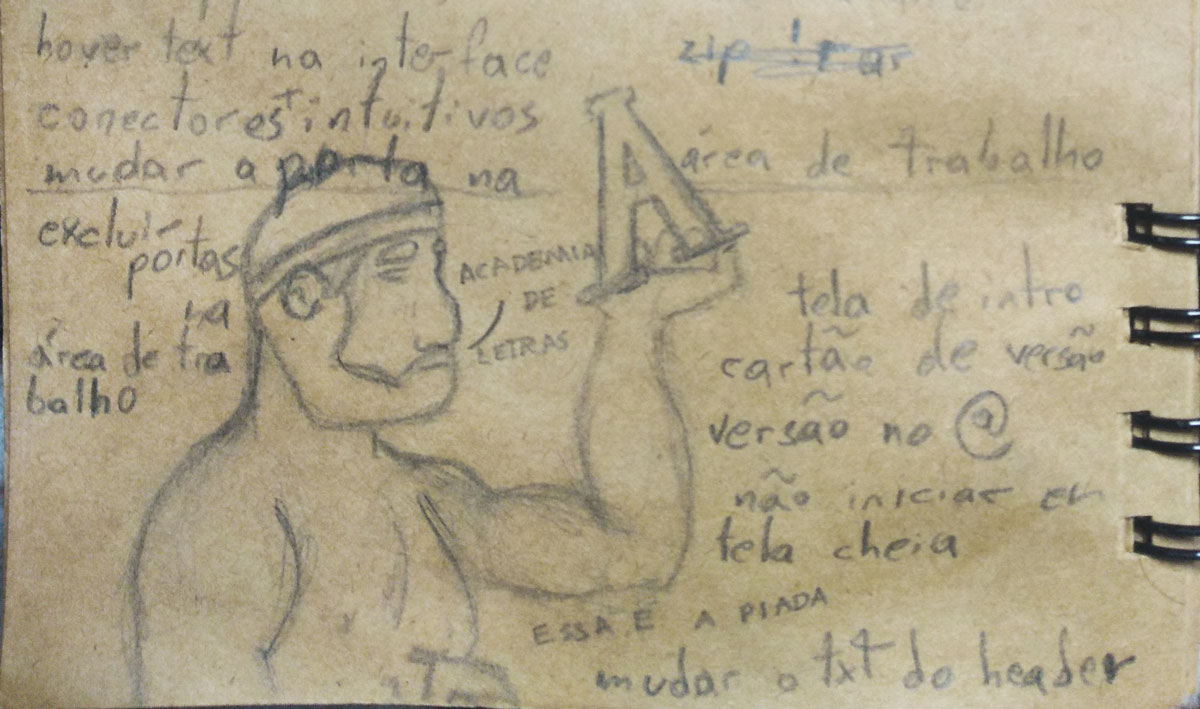 hover text na interface
conectores + intuitivos
mudar a porta na área de trabalho
excluir
portas
na
área de tra
balho
zip
A
ACADEMIA
DE
LETRAS
tela de intro
cartão de versão
versão no @
não iniciar em
tela cheia
ESSA É A PIADA
mudar o txt do header